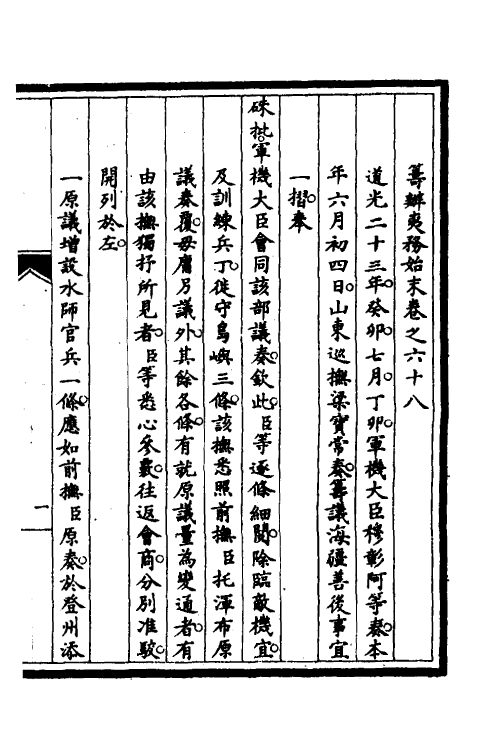 籌辦夷務始末卷之六十八
道光二十三年。癸卯。七月。丁卯。軍機大臣穆彰阿等奏。本
年六月初四日。山東巡撫梁寶常奏。籌議海疆善後事宜
一摺。奉
硃批。軍機大臣會同該部議奏。欽此。臣等逐條細閱。除臨敵機宜。
及訓練兵丁。徙守島嶼三條。該撫悉照前撫臣托渾布原
議奏覆。毋庸另議外。其餘各條。有就原議量為變通者。有
由該撫獨抒所見者。臣等悉心參覈。往返會商。分別准駁。
開列於左。
一原議增設水師官兵一條。應如前撫臣原奏。於登州添
一